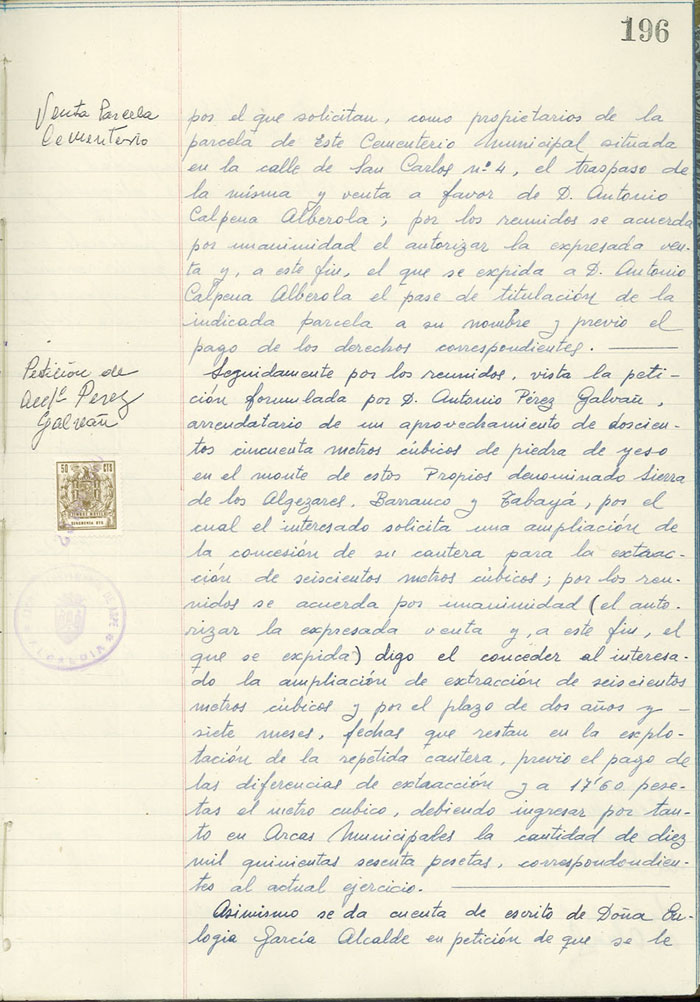 196
Venta Parcela
Cementerio
por el que solicitan, como propietarios de la
parcela de Este Cementerio Municipal situada
en la calle de San Carlos nº 4, el traspaso de
la misma y venta a favor de D. Antonio
Calpena Alberola; por los reunidos se acuerda
por unanimidad el autorizar la expresada ven-
ta y, a este fin, el que se expida a D. Antonio
Calpena Alberola el pase de titulación de la
indicada parcela a su nombre y previo el
pago de los derechos correspondientes. —
Petición de
Antº Perez
Galvañ
Seguidamente por los reunidos, vista la peti-
ción formulada por D. Antonio Pérez Galvañ,
arrendatario de un aprovechamiento de doscien-
tos cincuenta metros cúbicos de piedra de yeso
en el monte de estos Propios denominado Sierra
de los Algezares, Barranco y Tabayá, por el
cual el interesado solicita una ampliación de
la concesión de su cantera para la extrac-
ción de seiscientos metros cúbicos; por los reu-
nidos se acuerda por unanimidad (el auto-
rizar la expresada venta y, a este fin, el
que se expida) digo el conceder al interesa-
do la ampliación de extracción de seiscientos
metros cúbicos y por el plazo de dos años y -
siete meses, fechas que restan en la explo-
tación de la repetida cantera, previo el pago de
las diferencias de extracción y a 17'60 pese-
tas el metro cubico, debiendo ingresar por tan-
to en Arcas Municipales la cantidad de diez
mil quinientas sesenta pesetas, correspondien-
tes al actual ejercicio. —
Asimismo se da cuenta de escrito de Doña Eu-
logia García Alcalde en petición de que se le
50 CTS